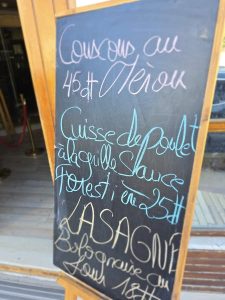 Couscous au
45dt Mérou
Cuisse de poulet
à la grille Sauce
Forestière 25dt
LASAGNE
Bolognaise au
four 18dt